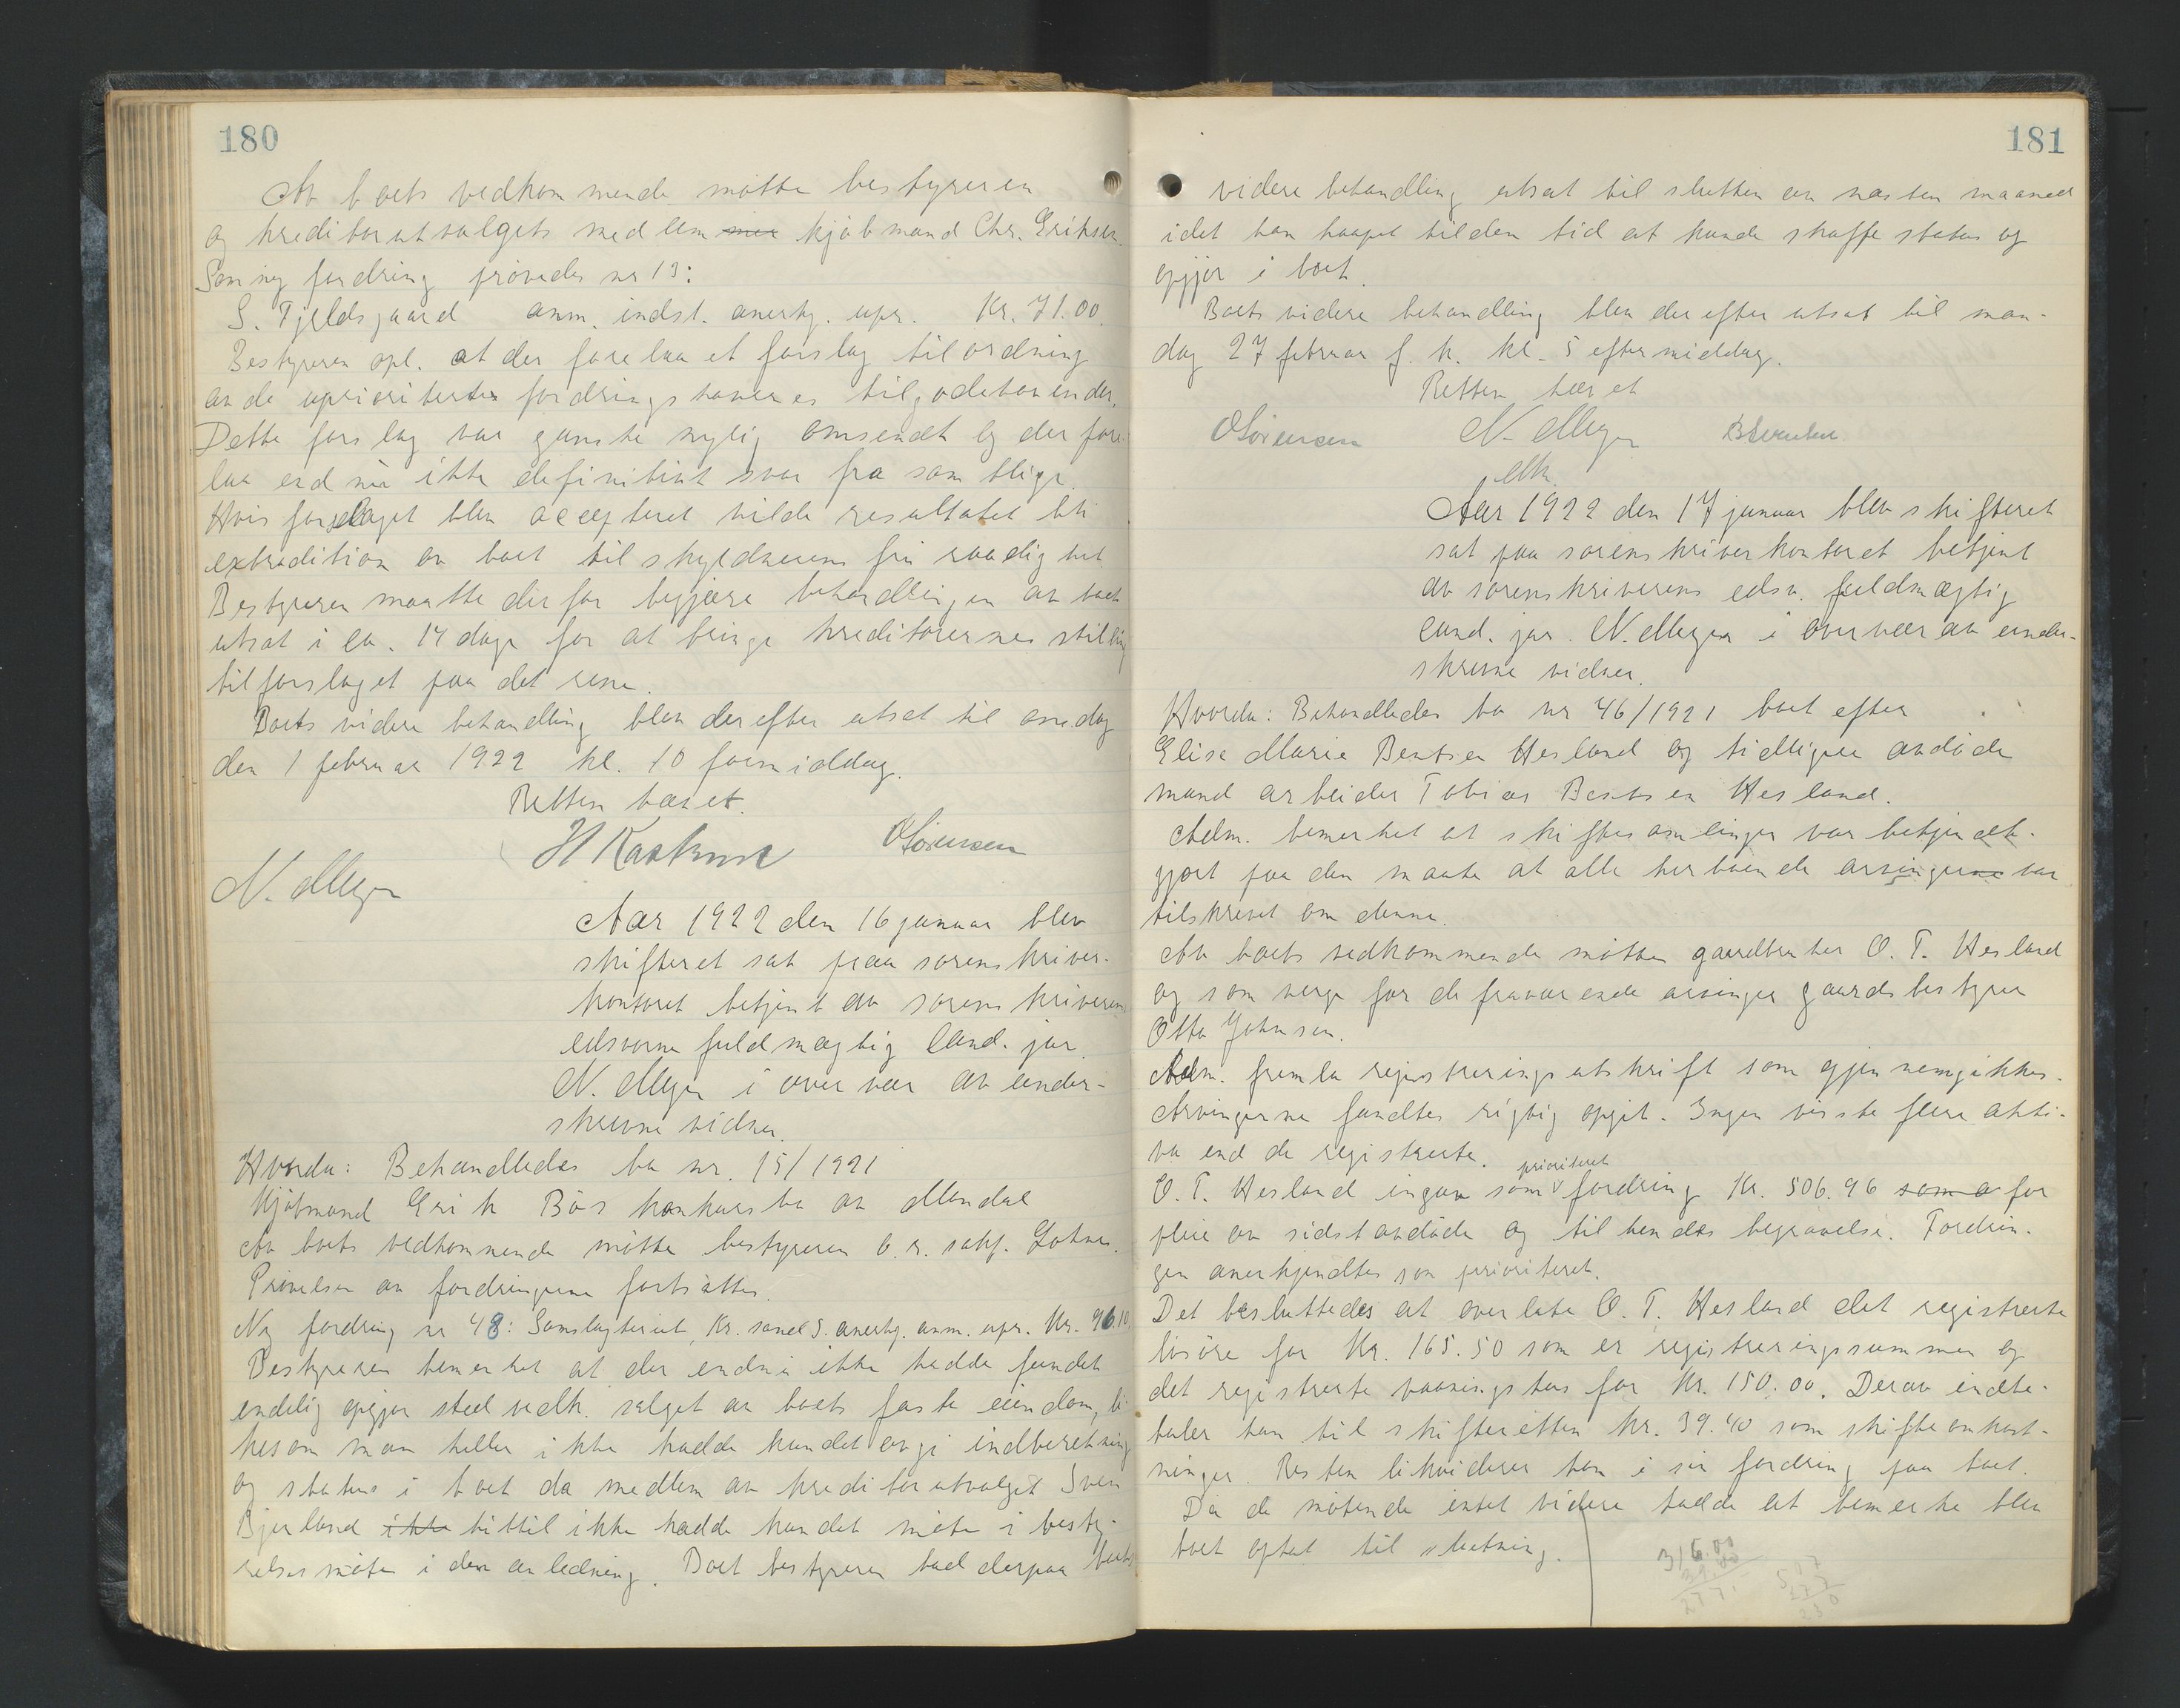 180
Av boets vedkommende møtte bestyreren
og kreditorutvalgets medlem kjøbmand Chr. Eriksen.
Som ny fordring prøvedes nr 13:
S. Fjeldsgaard anm. indst. anerkj. upr. Kr. 71.00
Bestyreren opl. at der forelaa et forslag til ordning
av de uprioriterte fordringshaveres tilgodehavender.
Dette forslag var ganske nylig omsendt og der fore-
laa endnu ikke definitivt svar fra samtlige.
Hvis forslaget blev acceptert vilde resultatet bli
extradition av boet til skyldnerens fri raadighet
Bestyreren maatte derfor begjære behandlingen av boet
utsat i ca. 14 dage for at bringe kreditorernes stilling
til forslaget paa det rene.
Boets videre behandling blev derefter utsat til onsdag
den 1 februar 1922 kl. 10 formiddag.
Retten hævet.
N. Meyer OSørensen
Aar 1922 den 16 januar blev
skifteret sat paa sorenskriver-
kontoret betjent av sorenskriverens
edsvorne fuldmægtig cand. jur.
N. Meyer i overvær av under-
skrevne vidner.
Hvorda: Behandledes bo nr. 15/1921
Kjøbmand Erik Bø's konkursbo av Mandal
Av boets vedkommende møtte bestyreren o. r. sakf.
Prøvelsen av fordringerne fortsattes.
Ny fordring nr 48: Samlagteriet, Kr.sand S. anerkj. anm. upr. Kr. 96.10
Bestyreren bemerket at der endnu ikke hadde fundet
endelig opgjør sted vedk. salget av boets faste eiendom, li-
kesom man heller ikke hadde kundet avgi indberetning
og status i boet da medlem av kreditorutvalget Sven
Bjerland ikke hittil ikke hadde kundet møte i besty-
relsesmøte i den anledning. Boet bestyreren bad derpaa boets
181
videre behandling utsat til slutten av næsten maaned
idet han haapet til den tid at kunde skaffe status og
opgjør i boet.
Boets videre behandling blev derefter utsat til man-
dag 27 februar f. k. kl. 5 eftermiddag.
Retten hævet
OSørensen N. Meyer
Aar 1922 den 17 januar blev skifteret
sat paa sorenskriverkontoret betjent
av sorenskriverens edsv. fuldmægtig
cand. jur. N. Meyer i overvær av under-
skrevne vidner.
Hvorda: Behandledes bo nr 46/1921 boet efter
Elise Marie Bentsen Hesland og tidligere avdøde
mand arbeider Tobias Bentsen Hesland.
Adm. bemerket at skiftesamlingen var betjendt-
gjort paa den maate at alle herboende arvinger var
tilskrevet om denne.
Av boets vedkommende møtte gaardbruker O. T. Hesland
og som verge for de fraværende arvinger gaardsbestyrer
Otto Johnsen.
Adm. fremla registreringsutskrift som gjennemgikkes.
Arvingerne fandtes rigtig opgit. Ingen visste flere akti-
va end de registrerte.
prioritert
O. T. Hesland ingav som fordring Kr. 506.96 som a for
pleie av sidst avdøde og til hendes begravelse. Fordrin-
gen anerkjendtes som prioritert.
Det besluttedes at overlate O. T. Hesland det registrerte
løsøre for Kr. 165.50 som er registreringssummen og
det registrerte vaaningshus for Kr. 150.00. Derav indbe-
taler han til skifteretten kr. 39.40 som skifteomkost-
ninger. Resten likviderer han i sin fordring paa boet.
Da de møtende intet videre hadde at bemerke blev
boet optat til slutning.
316.00
39.00
277.
507
277
230